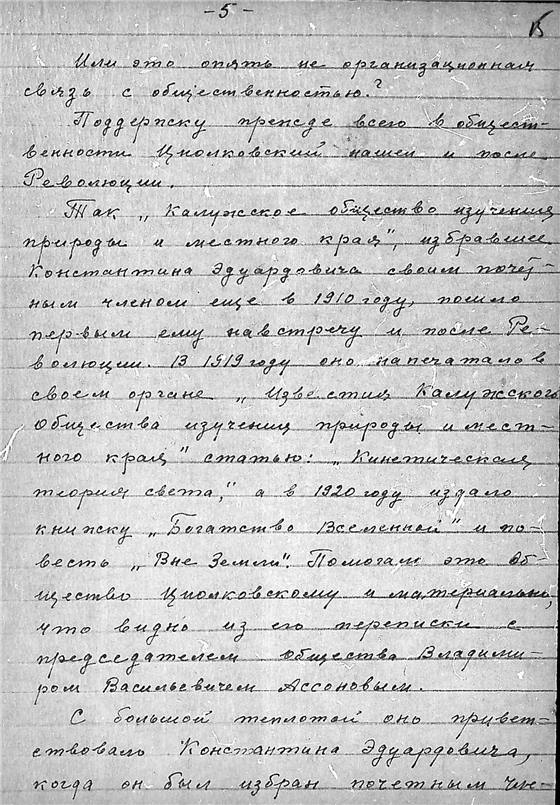 -5-
Или это опять не организационная
связь с общественностью?
Поддержку прежде всего в общест-
венности Циолковский нашел и после
Революции.
Так „Калужское общество изучения
природы и местного края", избравшее
Константина Эдуардовича своим почёт-
ным членом еще в 1910 году, пошло
первым ему навстречу и после Ре-
волюции. В 1919 году оно напечатало в
своем органе „Известия Калужского
Общества изучения природы и мест-
ного края" статью: „Кинетическая
теория света," а в 1920 году издало
книжку „Богатство Вселенной" и по-
весть „Вне Земли". Помогало это Об-
щество Циолковскому и материально,
что видно из его переписки с
председателем Общества Владими-
ром Васильевичем Ассоновым.
С большой теплотой оно привет-
ствовало Константина Эдуардовича,
когда он был избран почетным чле-